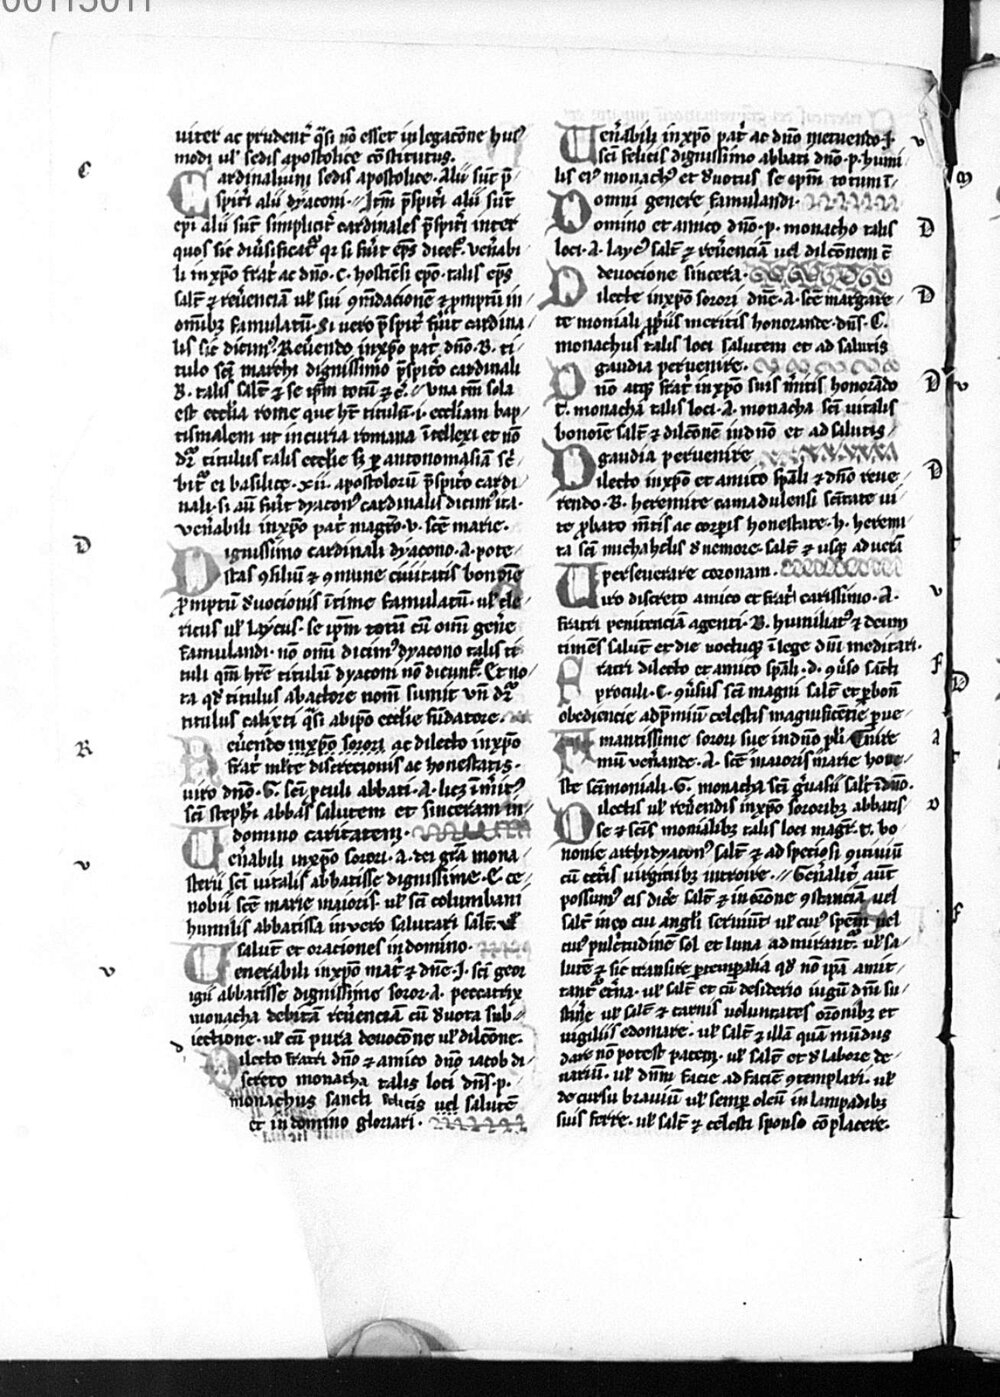 uiter ac prudent' q̄si nō esset in legacōne hus'
modi ul' sedis apostolice cōstitutus.
C ardinalium sedis apostolice. Alii sūt p̄
spiri alii dyaconi. Itm p̄spiri alii sūt
epi alii sūt simplicit' cardinales p̄spiri inter
quos sic diu'sificat' qr si fu'it ep̄s dicet'. ven̄abi
li in xp̄o frat' ac dn̄o. c. hostien̄si epō. talis ep̄s
salt' ⁊ reu'enciam ul' sui 9mēdacionē ⁊ p̄mptū in
om̄ibꝫ famulatū. Si uero p̄spir' fu'it cardina
lis sic dicim'. Reu'endo in xp̄o pat' dn̄o. B. ti
tulo scī marchi dignissimo p̄spit'o cardinali
B. talis salt' ⁊ se ip̄m totū ⁊ c̄. Una tm̄ sola
est ecclia rome que h̄t titulū. i. eccliam bap
tismalem ut in curia romana ītellexi et nō
dr̄ titulus talis ecclie sꝫ p antonomasiā sc'
bit' ei basilice. xii. apostolorū p̄spit'o cardi
nali. si aū fu'it dyacon' cardinalis dicim' ita.
ven̄abili in xp̄o pat' magr̄o. v. scē marie.
D ignissimo cardinali dyacono. A. pote
stas 9siliū ⁊ 9mune ciuitatis bonōie
p̄mptū deuocionis ītime famulatū. ul' cle
ricus ul' laycus. se ip̄m totū cū om̄i gen̄e
famulandi. nō om̄i dicim' dyacono talis ti
tuli qm̄ hr̄e titulū dyaconi nō dicunt'. Et no
ta qd' titulus ab actore nom̄ sumit un̄ dr̄
titulus calixti q̄si ab ipō ecclie fūdatore.
R eu'endo in xp̄o sorori ac dilecto in xp̄o
frat' mlte discrecionis ac honestatis.
uiro dn̄o. G. scī pculi abbati. A. lucꝫ īm'it'
scī steph̄i abbas salutem et sinceram in
domino caritatem.
V en̄abili in xp̄o sorori. A. dei grā mona
sterii scī uitalis abbatisse dignissime. C. ce
nobii scē marie maioris. ul' scī columbani
humilis abbatissa in uero salutari salt'. ul'
salutē et oraciones in domino.
V enerabili in xp̄o mat' ⁊ dn̄e. J. scī geor
igii abbatisse dignissime soror. A. peccatrix
monacha debitā reu'enciam cū deuota sub
iectione. ul' cū pura deuocōne ul' dilcōne.
D ilecto fratri dn̄o ⁊ amico dn̄o iacob di
screto monacha talis loci dn̄s. p.
monachus sancti felicis uel salutē
et in domino gloriari.
V en̄abili in xp̄o pat' ac dn̄o metuendo. J.
scī felicis dignissimo abbati dn̄o. p. humi
lis ei' monach' et deuotus se ip̄m totum ī
omni genere famulandi.
D omino et amico dn̄o. p. monacho talis
loci. A. layc' salt' ⁊ reu'enciam uel dilcōnem c̄
deuocione sincera.
D ilecte in xp̄o sorori dn̄e. A. scē margare
te moniali pp̄iis meritis honorande. dn̄s. C.
monachus talis loci salutem et ad salutis
gaudia peruenire.
D nō atqꝫ frat' in xp̄o suis m'itis honorādo
t. monacha talis loci. A. monacha scī uitalis
bononie salt' ⁊ dilcōnem in dn̄o et ad salutis
gaudia peruenire
D ilecto in xp̄o et amico sp̄ali ⁊ dn̄o reue
rendo. B. heremite camadulensi sc̄itate ui
te p̄bato m̄tis ac corp̄is honestate. h. heremi
ta scī michahelis de nemore. salt' ⁊ usqꝫ ad uerā
perseuerare coronam.
V iro discreto amico et frat'i carissimo. A.
fratri penitenciā agenti. B. humiliat' ⁊ deum
timēs salutē et die noctuqꝫ ī lege dn̄i meditari.
F ratri dilecto et amico sp̄ali. d. 9ūso sācti
proculi. C. 9ūsus scī magni salt' et p bonū
obediencie ad p̄miū celestis magnificencie p̄ue
A mantissime sorori sue in dn̄o
mū ven̄ande. A. scē maioris marie hone
ste scīmoniali. G. monacha scī g'uasii salt' ī dn̄o.
D ilectis ul' reu'endis in xp̄o sororibꝫ abbatis
se ⁊ scīs monialibꝫ talis loci magr̄. t. bo
nonie archidyacon' salt' ⁊ ad speciosi 9uiuiū
cū cetis uirginibꝫ introire. Gen̄alit' aūt
possum' eis dice' salt' ⁊ in or̄one 9stanciā uel
salt' in eo cui angli seruiūt ul' cui' spem̄ uel
cui' pulc'tudinē sol et luna admirant'. ul' sa
lutē ⁊ sic transire p tempalia qd' nō ip̄ā amit
tant et'na. ul' salt' et cū desiderio iugū dn̄i su
stin̄e ul' salt' ⁊ carnis uoluntates or̄onibꝫ et
uigiliis edomare. ul' salt' ⁊ illā quā mūdus
dare nō potest pacem. ul' salt' et de labore de
nariū. ul' dn̄m facie ad faciē 9templari. ul'
de cursu brauiū ul' semp oleū in lampadibꝫ
suis ferre. ul' salt' ⁊ celesti sponso cōplacere.